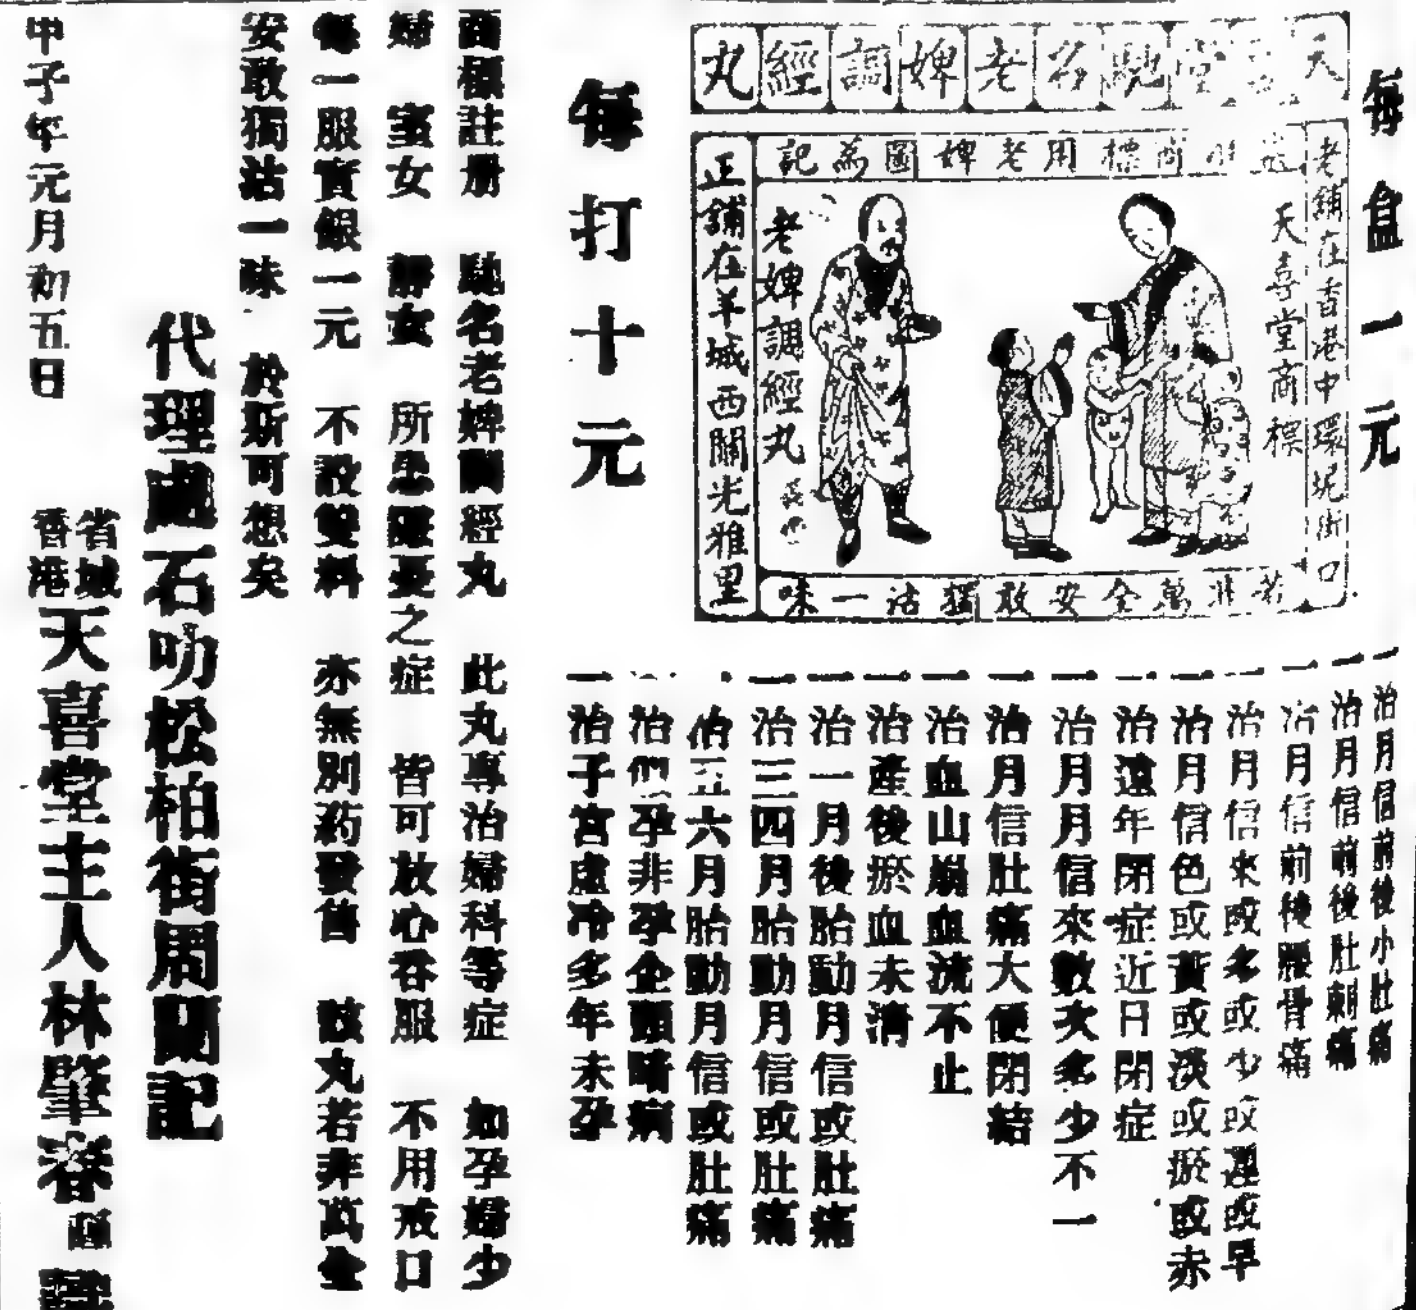 每盒一元
天喜堂馳名老婢調經丸
老舖在香港中環坭街口
商標用老婢圖為記
天喜堂商標
老婢調經丸
正舖在羊城西關光雅里
若非萬全安敢獨沽一味
每打十元
一治月信前後小肚痛
一治月信前後肚刺痛
一治月信前後腰骨痛
一治月信來或多或少或遲或早
一治月信色或黃或淡或瘀或赤
一治遠年閉症近日閉症
一治月月信來數次多少不一
一治月信肚痛大便閉結
一治血山崩血流不止
一治產後瘀血未清
一治一月後胎動月信或肚痛
一治三四月胎動月信或肚痛
一治五六月胎動月信或肚痛
一治似孕非孕企頭暗病
一治子宮虛冷多年未孕
商標註册 馳名老婢調經丸 此丸專治婦科等症 如孕婦少
婦 室女 靜女 所患隱憂之症 皆可放心吞服 不用戒口
每一服實銀一元 不設雙料 亦無別药發售 該丸若非萬全
安敢獨沽一味 於斯可想矣
代理處石叻松柏街周蘭記
省城
香港
天喜堂主人林肇春謹
甲子年元月初五日